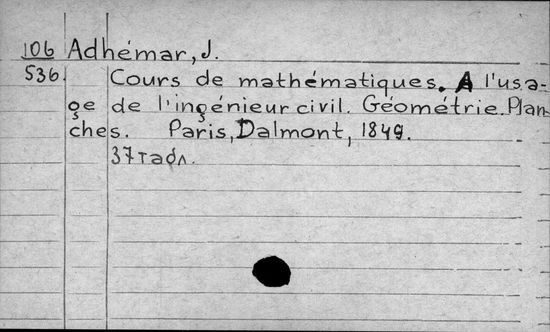 106 Adhémar, J.
536. Cours de mathématiques. A l'usa-
ge de l'ingénieur civil. Géométrie. Plan-
ches. Paris, Dalmont, 1849.
37 табл.